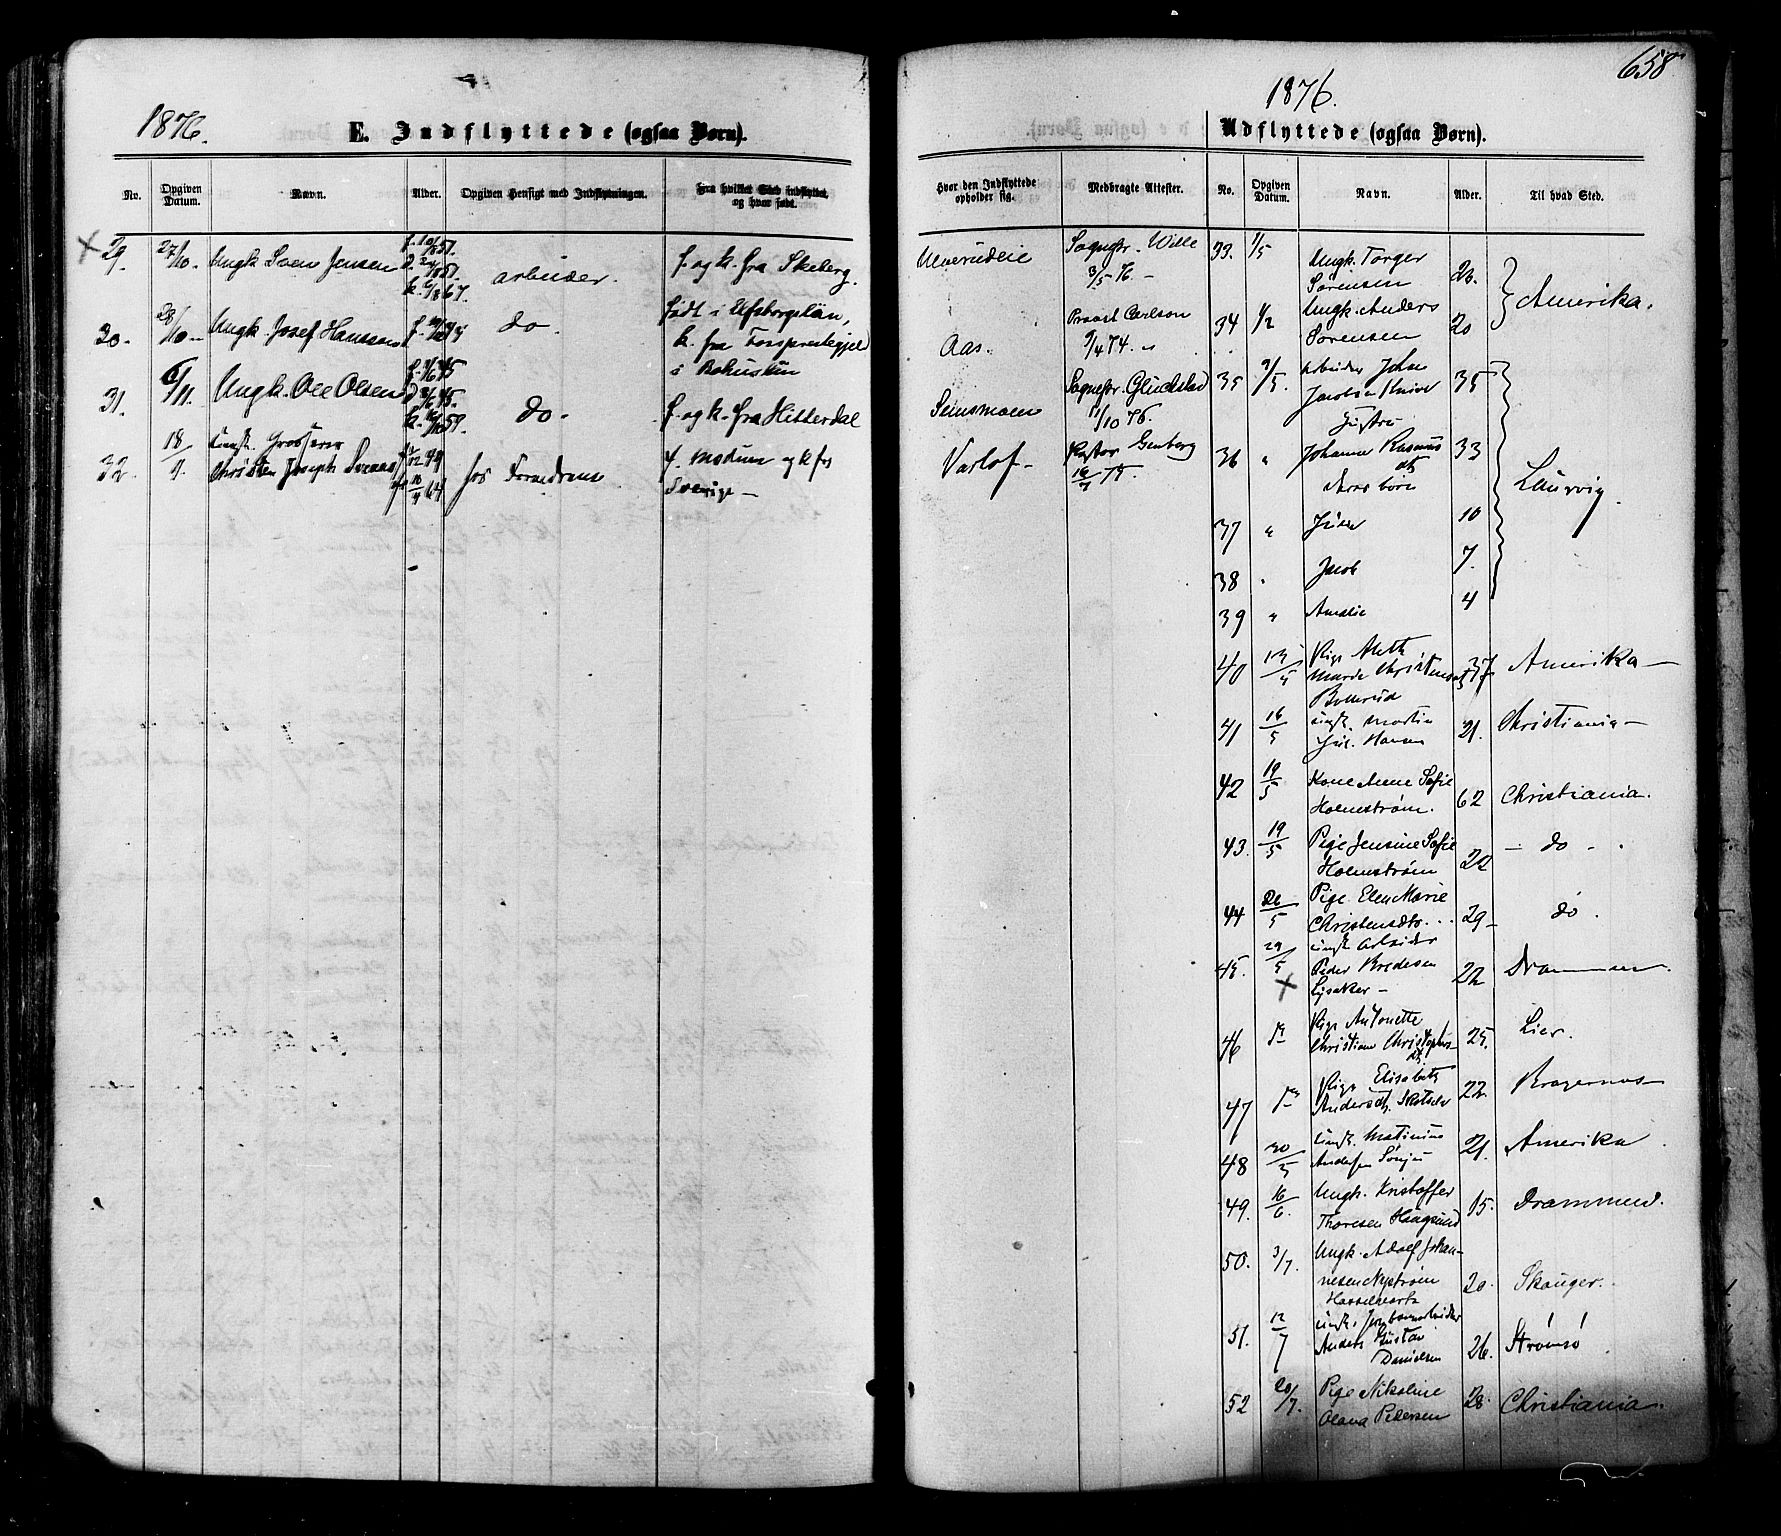 658
1876.
E. Indflyttede (ogsaa Børn).
No.
Opgiven Datum.
Navn.
Alder.
Opgiven Hensigt med Indflytningen.
Fra hvilket Sted indflyttet, og hvor født.
29. 27/10. Ungk Sven Jensen
arbeider. f. og k. fra Skeberg.
30. 28/10 Ungk. Josef Hanssen
do. født i Elfsborgslän,
k. fra Tossprestegjeld
i Bohuslän
31. 6/11. Ungk. Ole Olsen
do. f. og k. fra Hitterdal
32. 18/9. Ungk. Grosserer
Christen Joseph
hos Forældrene f. Modum og k fra
Sverige —
1876.
Udflyttede (ogsaa Børn).
Hvor den Indflyttede opholder sig.
Medbragte Attester.
No.
Opgiven Datum.
Navn.
Alder.
Til hvad Sted.
Ulverudeie Sognepr. Wille
3/5 76 —
33. 1/5 Ungk. Torger
Sørensen 20. Amerika.
Aas. Provst Carlson
9/4 74.
34 1/2 Ungk. Anders
Sørensen 20
Semsmoen Sognepr. Gluckstad
11/10 76.
35 2/5. Arbeider John
Jacobsen 35
Varlof — Pastor Genberg
36 " Johanne Rasmus
dtr 33 Laurvig
deres børn
37 " 10
38 " Jacob 7.
39 " Amalie 4
40 13/5 Pige Aleth
Marie Christensdt 37 Amerika —
Bollerud
41 16/5 ungk. Martin
Jul. Hansen 21. Christiania —
42 19/5 Kone Anne Sofie
Holmstrøm. 62 Christiania.
43. 19/5 Pige Jensine Sofie
Holmstrøm 22 — do —
44 20/5 Pige Elen Marie
Christensdtr. 29 — do.
45. 29/5 ungk arbeider
Peder Bredesen
Lysaker — 22 Drammen.
46 Pige Antonette
Christiane Christophers-
dt 25. Lier.
47 Pige Elisabeth
Andersdt. 22 Bragernæs —
48 30/5 ungk. Matinius
Andersen 21. Amerika
49. 16/6. Ungk. Kristoffer
Thoresen Haugsund 15. Drammen.
50. 3/7. Ungk. Adolf Johan-
nesen Nystrøm 20. Skouger.
51. 12/7 ungk. Jernbanearbeider
Anders Gustav
Danielsen 26. Strømsø
52 20/7. Pige Nikoline
Olava Pedersen 28. Christiania.